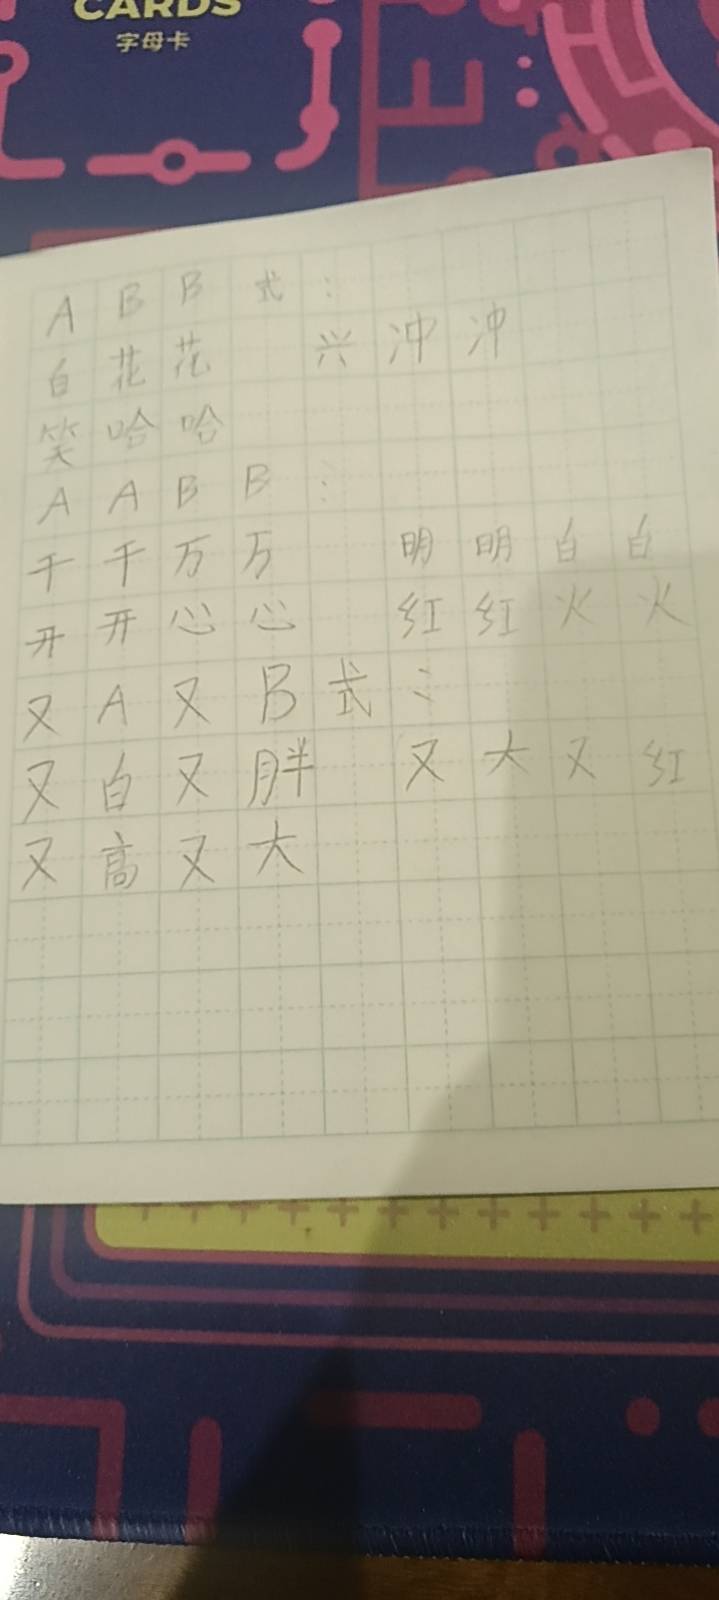 CARDS
字母卡
A B B 式：
白花花 兴冲冲
笑哈哈
A A B B：
千千万万 明明白白
开开心心 红红火火
又 A 又 B 式：
又白又胖 又大又红
又高又大